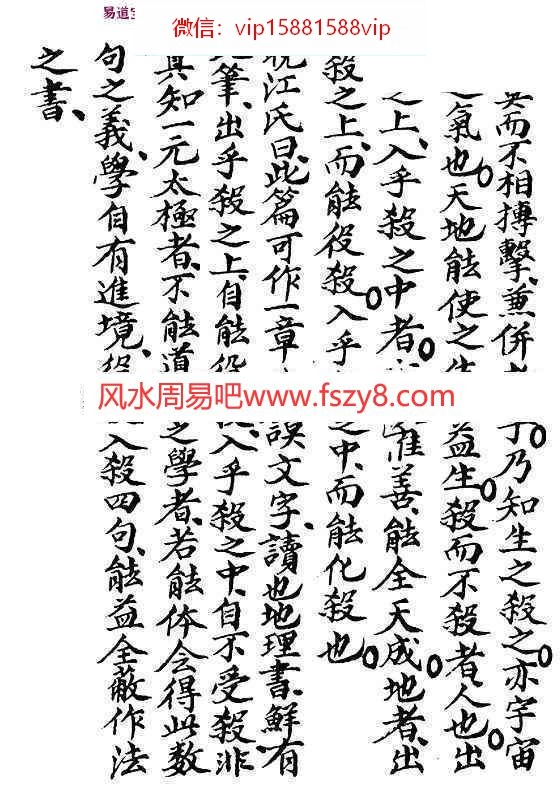 易道
微信：vip15881588vip
而不相搏擊、兼併 乃知生之殺之亦宇宙
之氣也天地能使之生 益生殺而不殺者人也出
之上、入乎殺之中者 善、能全天成地者、出
殺之上、而能役殺入乎 之中、而能化殺也
江氏曰、此篇可作一章 誤文字、讀也地理書、鮮有
筆、出乎殺之上、自能役 入乎殺之中、自不受殺、非
真知一元太極者、不能道 之學者、若能体会得此数
句之義、學自有進境、 入殺四句、能益全蔽作法
之書、
风水周易吧www.fszy8.com